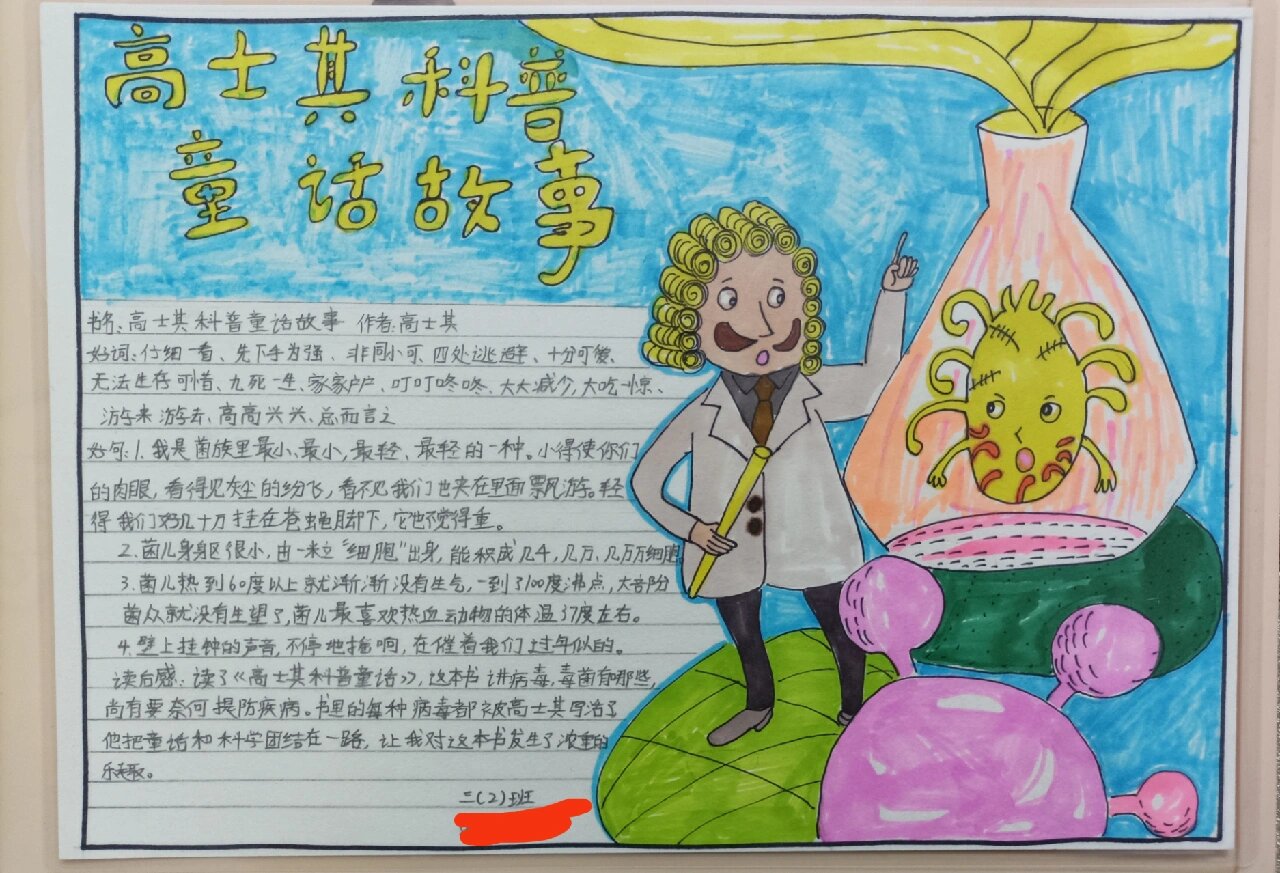 高士其科普
童话故事
书名:高士其科普童话故事 作者:高士其
好词:仔细一看、先下手为强、非同小可、四处逃避、十分可惜、
无法生存可惜、九死一生、家家户户、叮叮咚咚、大大减少,大吃一惊、
游来游去、高高兴兴、总而言之
好句:1.我是菌族里最小、最小,最轻、最轻的一种。小得使你们
的肉眼,看得见灰尘的纷飞,看不见我们也夹在里面飘游。轻
得我们好几十万挂在苍蝇脚下,它也不觉得重。
2.菌儿身躯很小,由一粒“细胞”出身,能积成几千,几万、几万万细胞
3.菌儿热到60度以上就渐渐没有生气,一到了100度沸点,大部分
菌众就没有生望了,菌儿最喜欢热血动物的体温37度左右。
4.壁上挂钟的声音,不停地摇响,在催着我们过年似的。
读后感:读了《高士其科普童话》,这本书讲病毒,毒菌有哪些,
尚有要奈何提防疾病。书里的每种病毒都被高士其写活了
他把童话和科学团结在一路,让我对这本书发生了浓重的
乐趣。
三(2)班